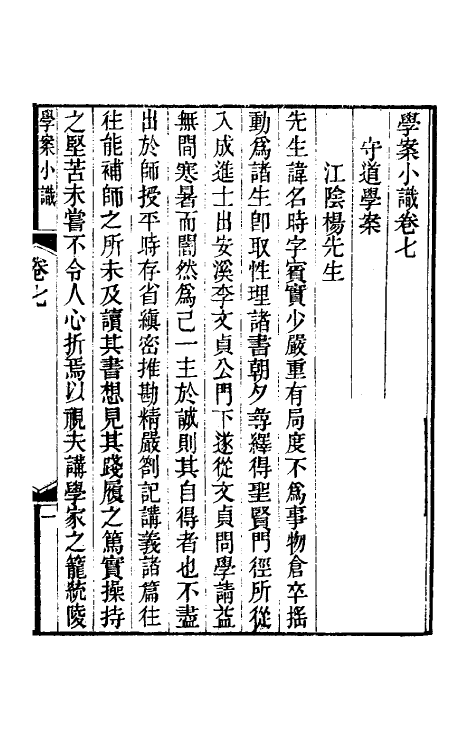 學案小識卷七
守道學案
江陰楊先生
先生諱名時字賓實少嚴重有局度不爲事物倉卒搖
動爲諸生卽取性理諸書朝夕尋繹得聖賢門徑所從
入成進士出安溪李文貞公門下遂從文貞問學請益
無間寒暑而闇然爲己一主於誠則其自得者也不盡
出於師授平時存省縝密推勘精嚴劄記講義諸篇往
往能補師之所未及讀其書想見其踐履之篤實操持
之堅苦未嘗不令人心折焉以視夫講學家之籠統陵
學案小識 卷七 一